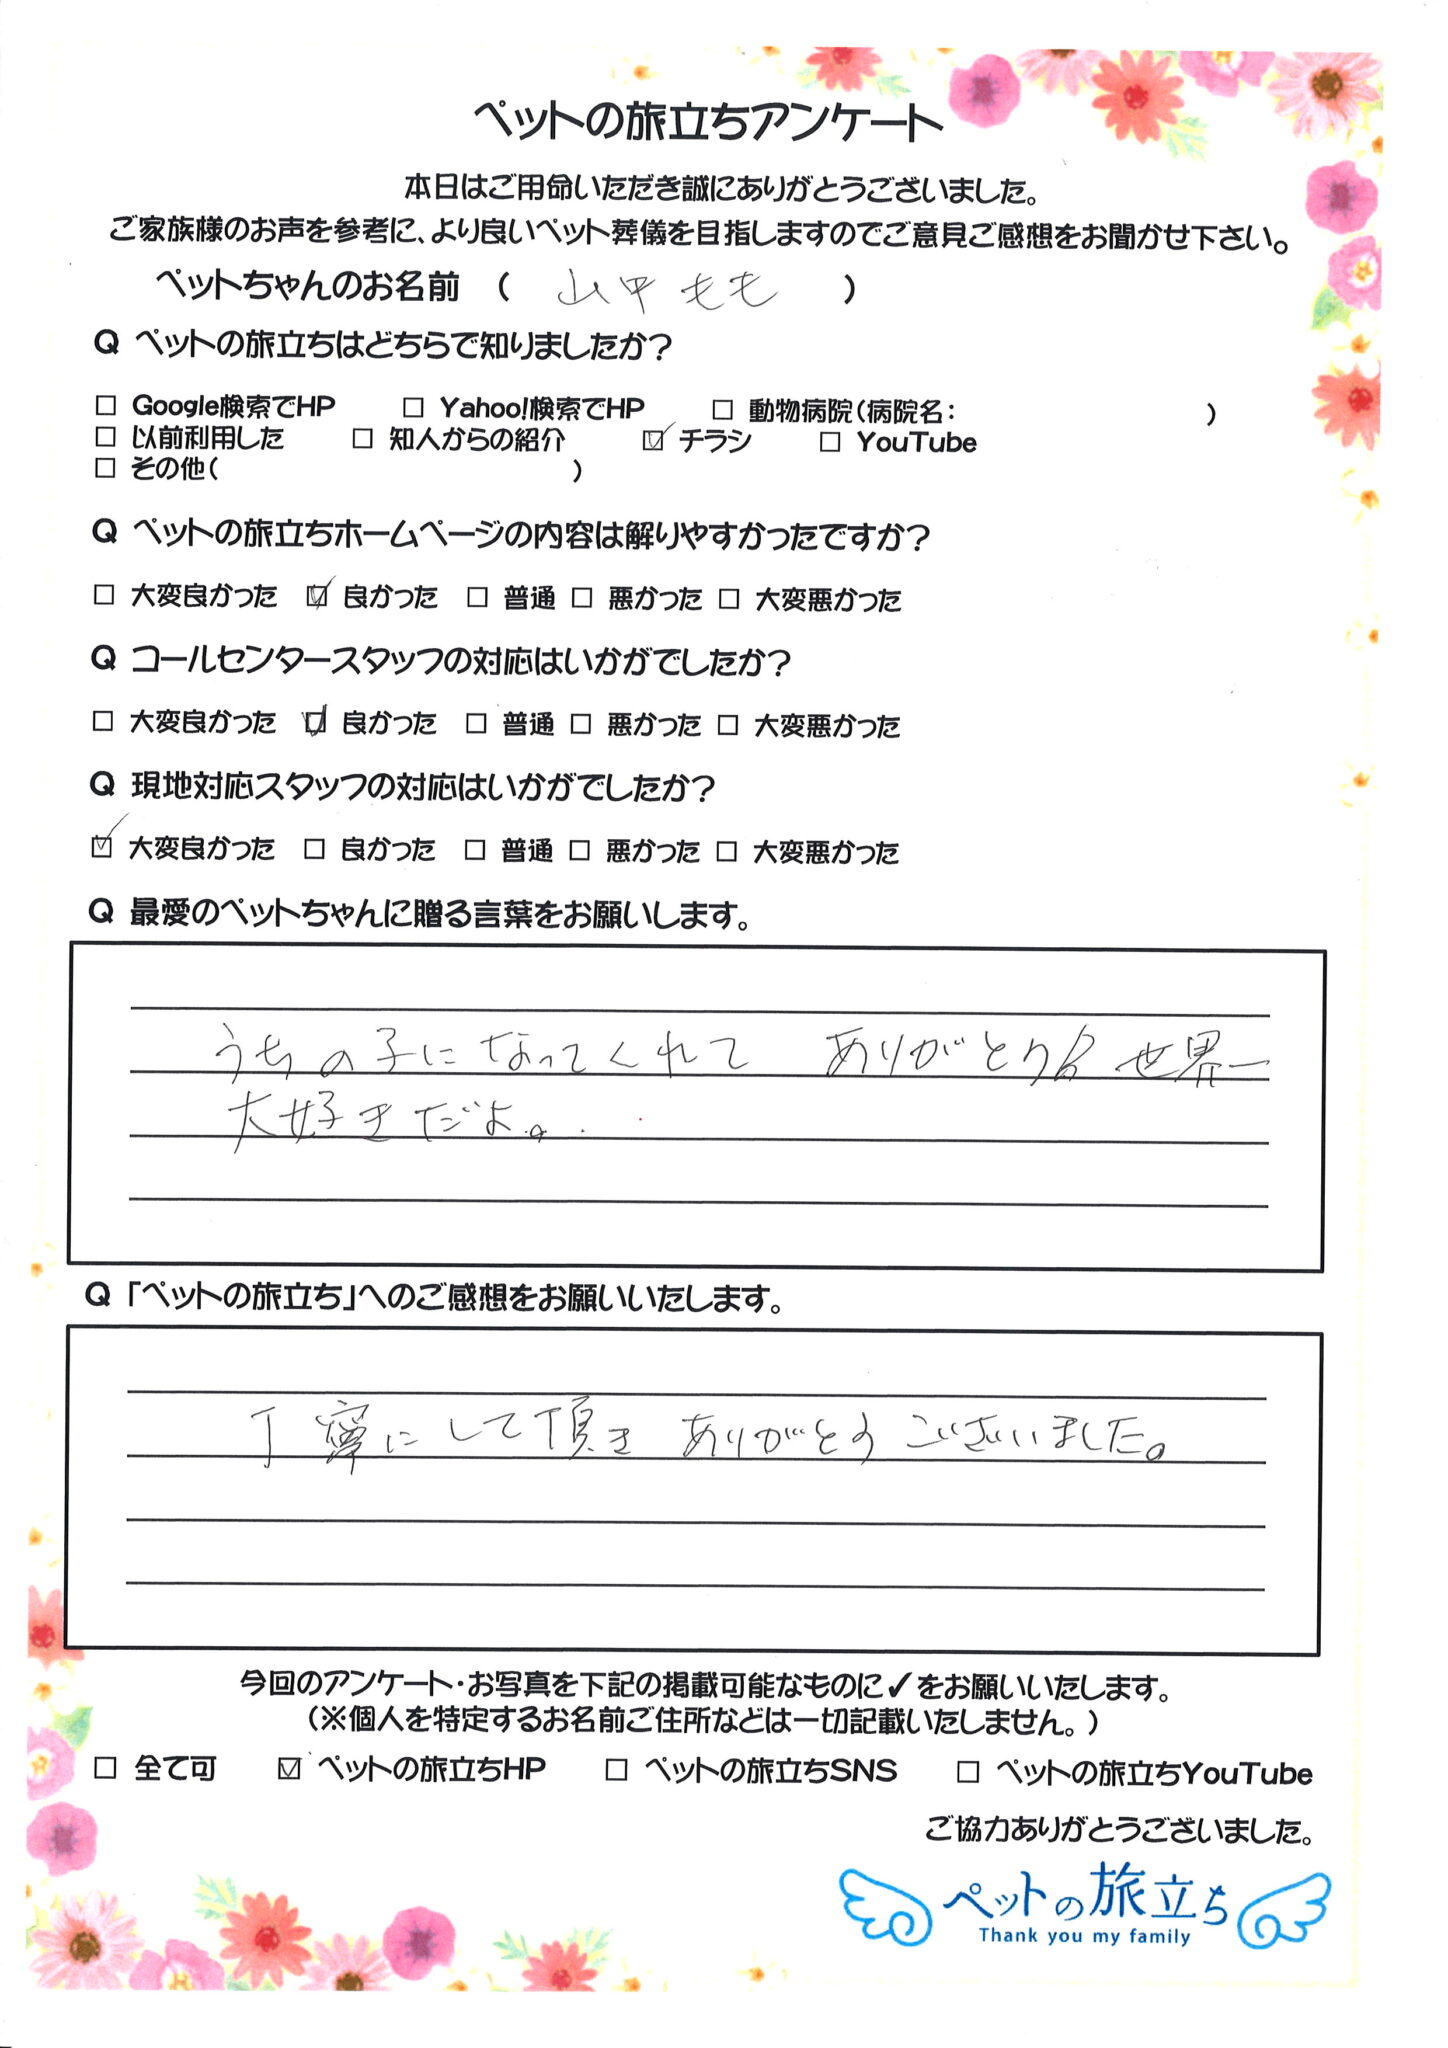 ペットの旅立ちアンケート
本日はご用命いただき誠にありがとうございました。
ご家族様のお声を参考に、より良いペット葬儀を目指しますのでご意見ご感想をお聞かせ下さい。
ペットちゃんのお名前 ( 山中 もも )
Q ペットの旅立ちはどちらで知りましたか?
□ Google検索でHP □ Yahoo!検索でHP □ 動物病院(病院名: )
□ 以前利用した □ 知人からの紹介 ☑ チラシ □ YouTube
□ その他( )
Q ペットの旅立ちホームページの内容は解りやすかったですか?
□ 大変良かった ☑ 良かった □ 普通 □ 悪かった □ 大変悪かった
Q コールセンタースタッフの対応はいかがでしたか?
□ 大変良かった ☑ 良かった □ 普通 □ 悪かった □ 大変悪かった
Q 現地対応スタッフの対応はいかがでしたか?
☑ 大変良かった □ 良かった □ 普通 □ 悪かった □ 大変悪かった
Q 最愛のペットちゃんに贈る言葉をお願いします。
うちの子になってくれて ありがとうね 世界一
大好きだよ。
Q 「ペットの旅立ち」へのご感想をお願いいたします。
丁寧にして頂き ありがとうございました。
今回のアンケート・お写真を下記の掲載可能なものに✓をお願いいたします。
(※個人を特定するお名前ご住所などは一切記載いたしません。)
□ 全て可 ☑ ペットの旅立ちHP □ ペットの旅立ちSNS □ ペットの旅立ちYouTube
ご協力ありがとうございました。
ペットの旅立ち
Thank you my family